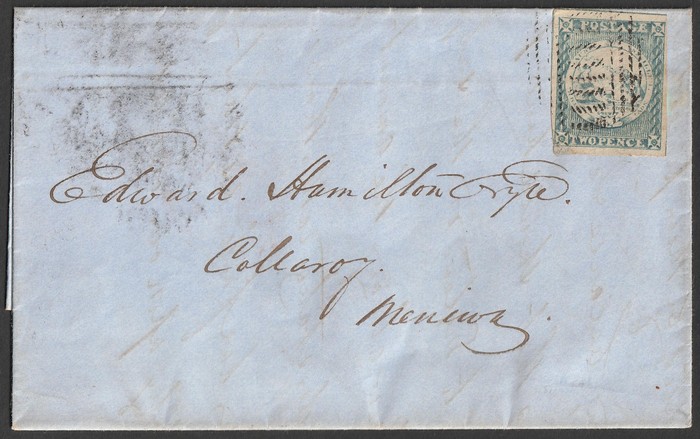 POSTAGE
TWO PENCE
Edward. Hamilton Esqre.
Collaroy.
Merriwa.